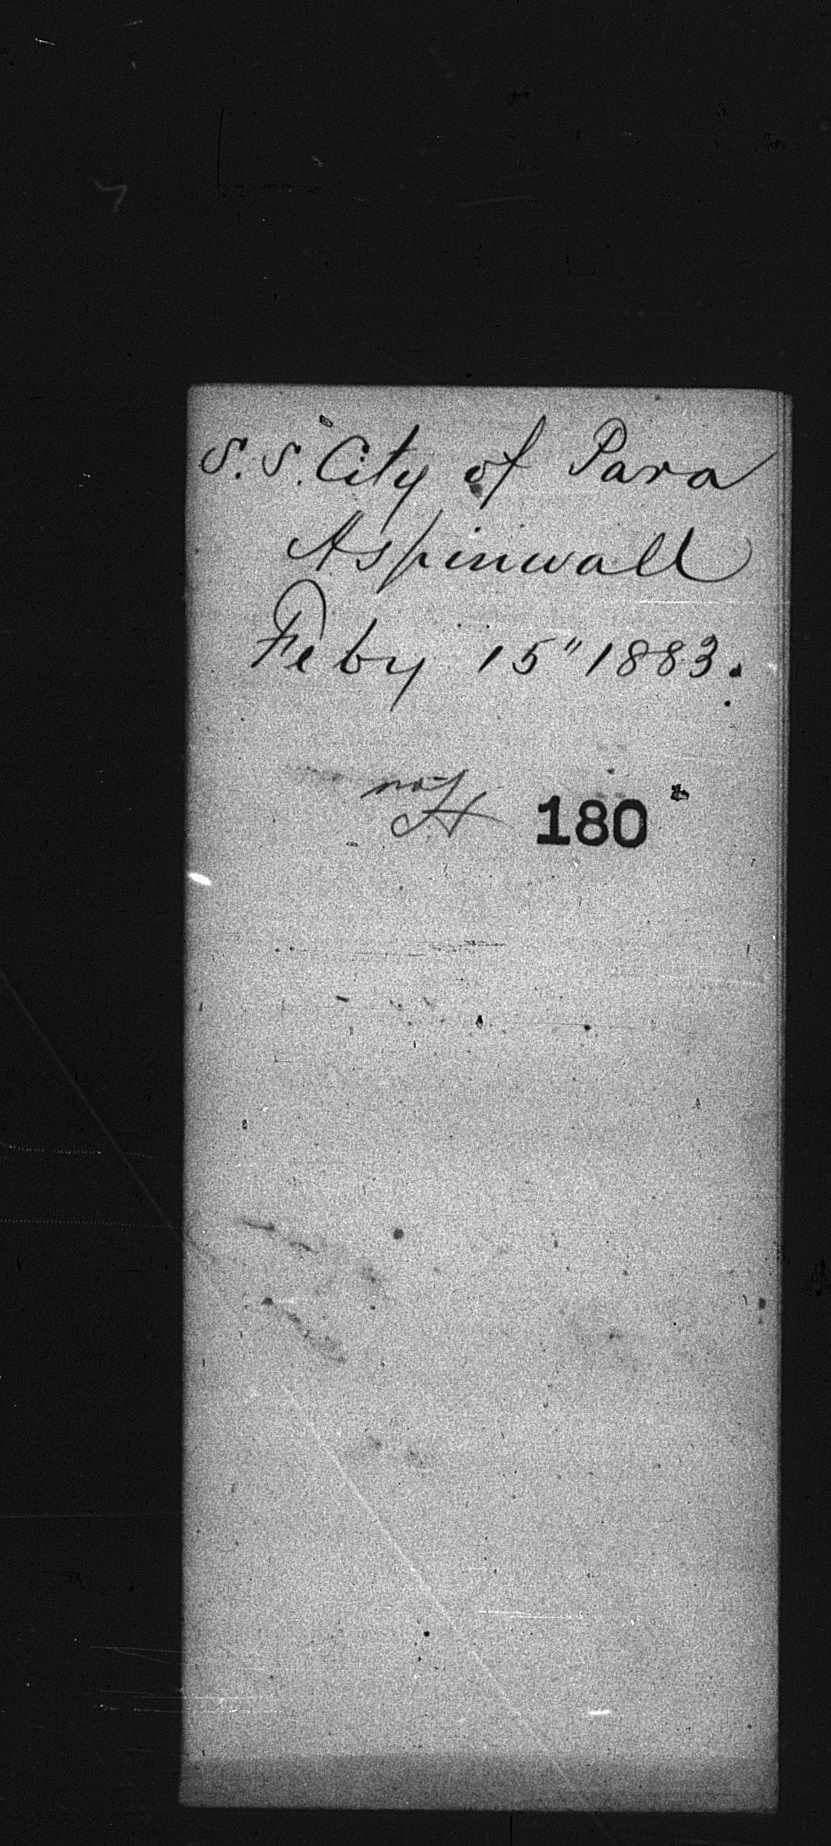 S.S. City of Para
Aspinwall
Feby 15" 1883.
180